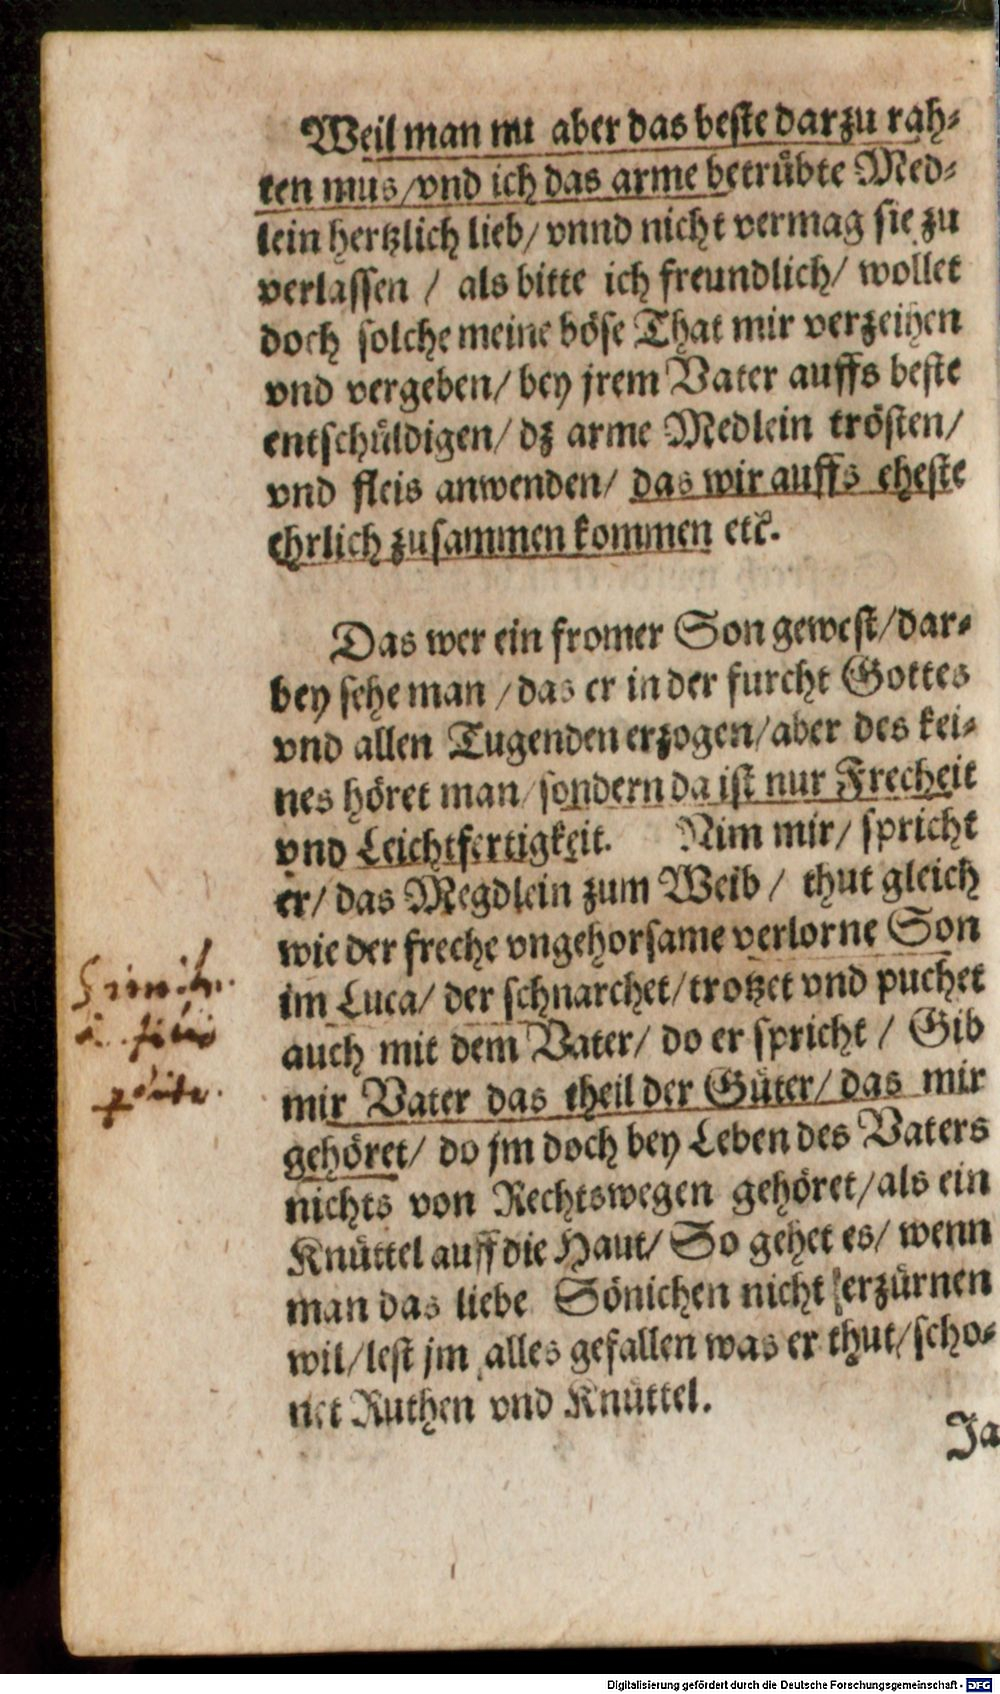 Weil man nu aber das beste darzu rah-
ten mus/vnd ich das arme betrübte Med-
lein hertzlich lieb/ vnnd nicht vermag sie zu
verlassen / als bitte ich freundlich/ wollet
doch solche meine böse That mir verzeihen
vnd vergeben/ bey jrem Vater auffs beste
entschüldigen/ dz arme Medlein trösten/
vnd fleis anwenden/ das wir auffs eheste
ehrlich zusammen kommen etc.
Das wer ein fromer Son gewest/dar-
bey sehe man /das er in der furcht Gottes
vnd allen Tugenden erzogen/aber des kei-
nes höret man/sondern da ist nur Frecheit
vnd Leichtfertigkeit. Nim mir/ spricht
er/ das Megdlein zum Weib / thut gleich
wie der freche vngehorsame verlorne Son
im Luca/ der schnarchet/trotzet vnd puchet
auch mit dem Vater/ do er spricht / Gib
mir Vater das theil der Güter/ das mir
gehöret/ do jm doch bey Leben des Vaters
nichts von Rechtswegen gehöret/als ein
Knüttel auff die Haut/ So gehet es/ wenn
man das liebe Sönichen nicht erzürnen
wil/lest jm alles gefallen was er thut/scho-
net Ruthen vnd Knüttel.
Ja
Digitalisierung gefördert durch die Deutsche Forschungsgemeinschaft - DFG